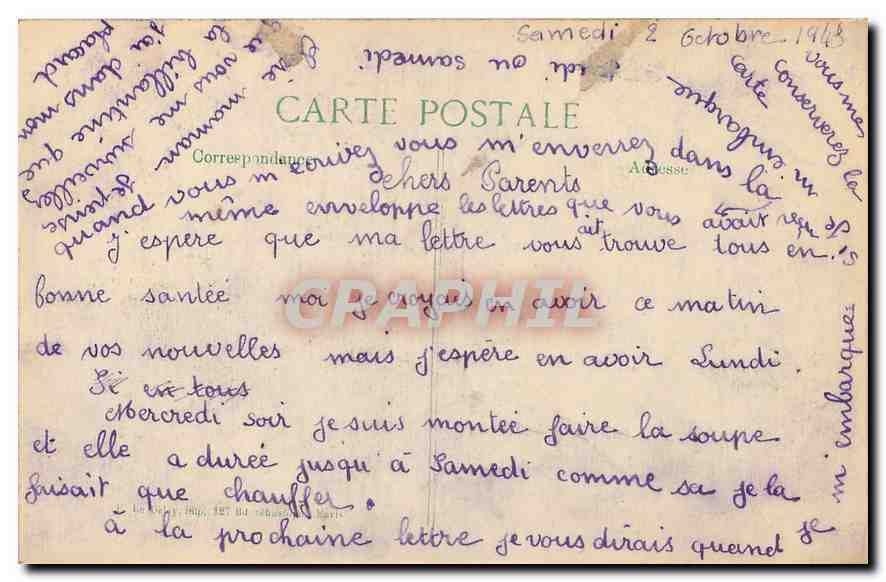 Samedi 2 Octobre 1943
CARTE POSTALE
Correspondance
Adresse
Chers Parents
j'espère que ma lettre vous ait trouve tous en
bonne santée moi je croyais en avoir ce matin
de vos nouvelles mais j'espère en avoir Lundi.
Si en tous
Mercredi soir je suis montée faire la soupe
et elle a durée jusqu'à Samedi comme sa je la
faisait que chauffer.
à la prochaine lettre je vous dirais quand
je m'embarque
quand vous m'écrivez vous m'enverrez dans la
même enveloppe les lettres que vous avait reçu
si je m'embarque
ou samedi
vous me
conserverez la
carte
je pense maman
que vous me surveillez
la brillantine que
j'ai dans mon
placard
GRAPHIL